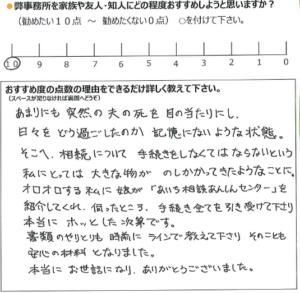 弊事務所を家族や友人・知人にどの程度おすすめしようと思いますか?
(勧めたい10点 ～ 勧めたくない0点) ○を付けて下さい。
10 9 8 7 6 5 4 3 2 1 0
おすすめ度の点数の理由をできるだけ詳しく教えて下さい。
(スペースが足りなければ裏面へどうぞ)
あまりにも突然の夫の死を目の当たりにし、
日々をどう過ごしたのか記憶にないような状態。
そこへ、相続について手続きをしなくてはならないという
私にとっては大きな物がのしかかってきたようなことに。
オロオロする私に娘が「あいち相続あんしんセンター」を
紹介してくれ、伺ったところ、手続き全てを引き受けて下さり
本当にホッとした次第です。
書類のやりとりも時前にラインで教えて下さりそのことも
安心の材料となりました。
本当にお世話になり、ありがとうございました。